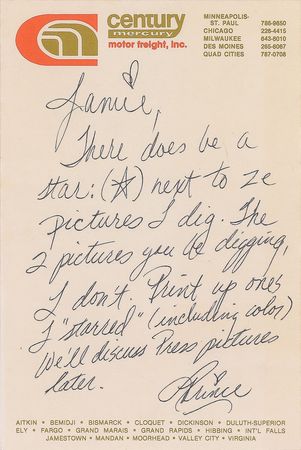 century
mercury
motor freight, inc.
MINNEAPOLIS-
ST. PAUL 786-9650
CHICAGO 226-4415
MILWAUKEE 643-8010
DES MOINES 265-6067
QUAD CITIES 787-0708
Jamie,
There does be a
star: (☆) next to ze
pictures I dig. The
2 pictures you be digging,
I don't. Print up ones
I "starred" (including color)
We'll discuss Press pictures
later.
Prince
AITKIN • BEMIDJI • BISMARCK • CLOQUET • DICKINSON • DULUTH-SUPERIOR
ELY • FARGO • GRAND MARAIS • GRAND RAPIDS • HIBBING • INT'L FALLS
JAMESTOWN • MANDAN • MOORHEAD • VALLEY CITY • VIRGINIA